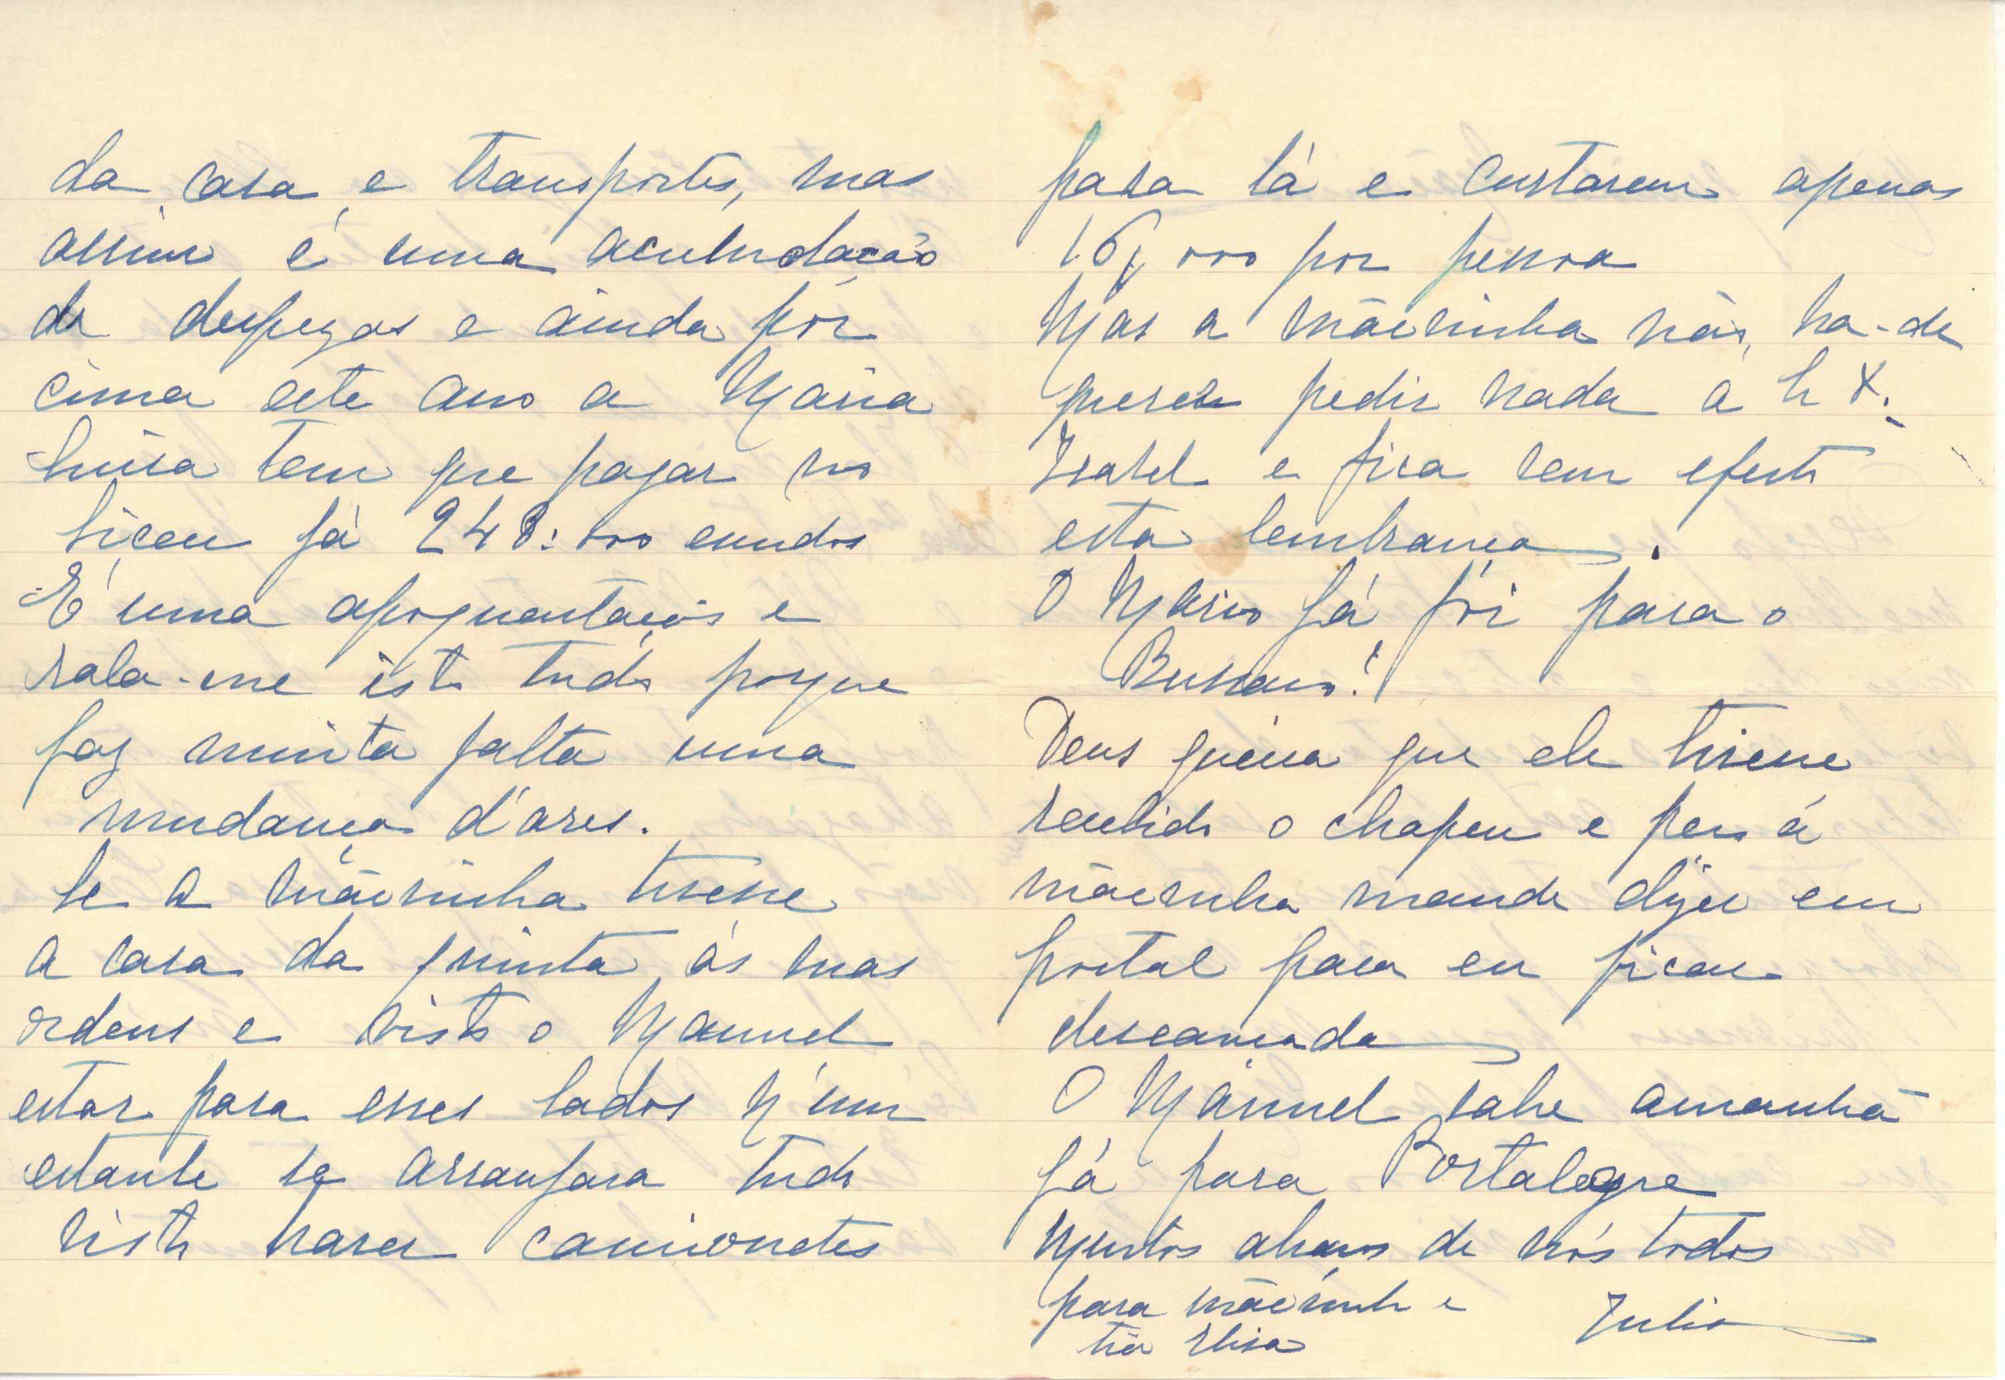 da casa e transportes, mas
assim é uma acumulação
de despezas e ainda pór
cima este ano a Maria
Luisa tem que pagar no
liceu já 248: escudos
É uma apoquentação e
rala-me isto tudo porque
faz muita falta uma
mudança d'ares.
Se a mãesinha tivesse
a casa da quinta ás suas
ordens e visto o Manuel
estar para esses lados n'um
estante se arranjara tudo
visto haver camionetes
para lá e custarem apenas
16$000 por pessoa
Mas a mãesinha não, ha-de
querer pedir nada a
Izabel e fica sem efeito
esta lembrança.
O Mario já fói para o
Bussaco!
Deus queira que ele tivesse
recebido o chapeu e peço á
mãesinha mande dizer em
postal para eu ficar
descançada
O Manuel sahe amanhã
já para Portalegre
Muitos abraços de nós todos
para mãesinha e
tia Elisa
Julia